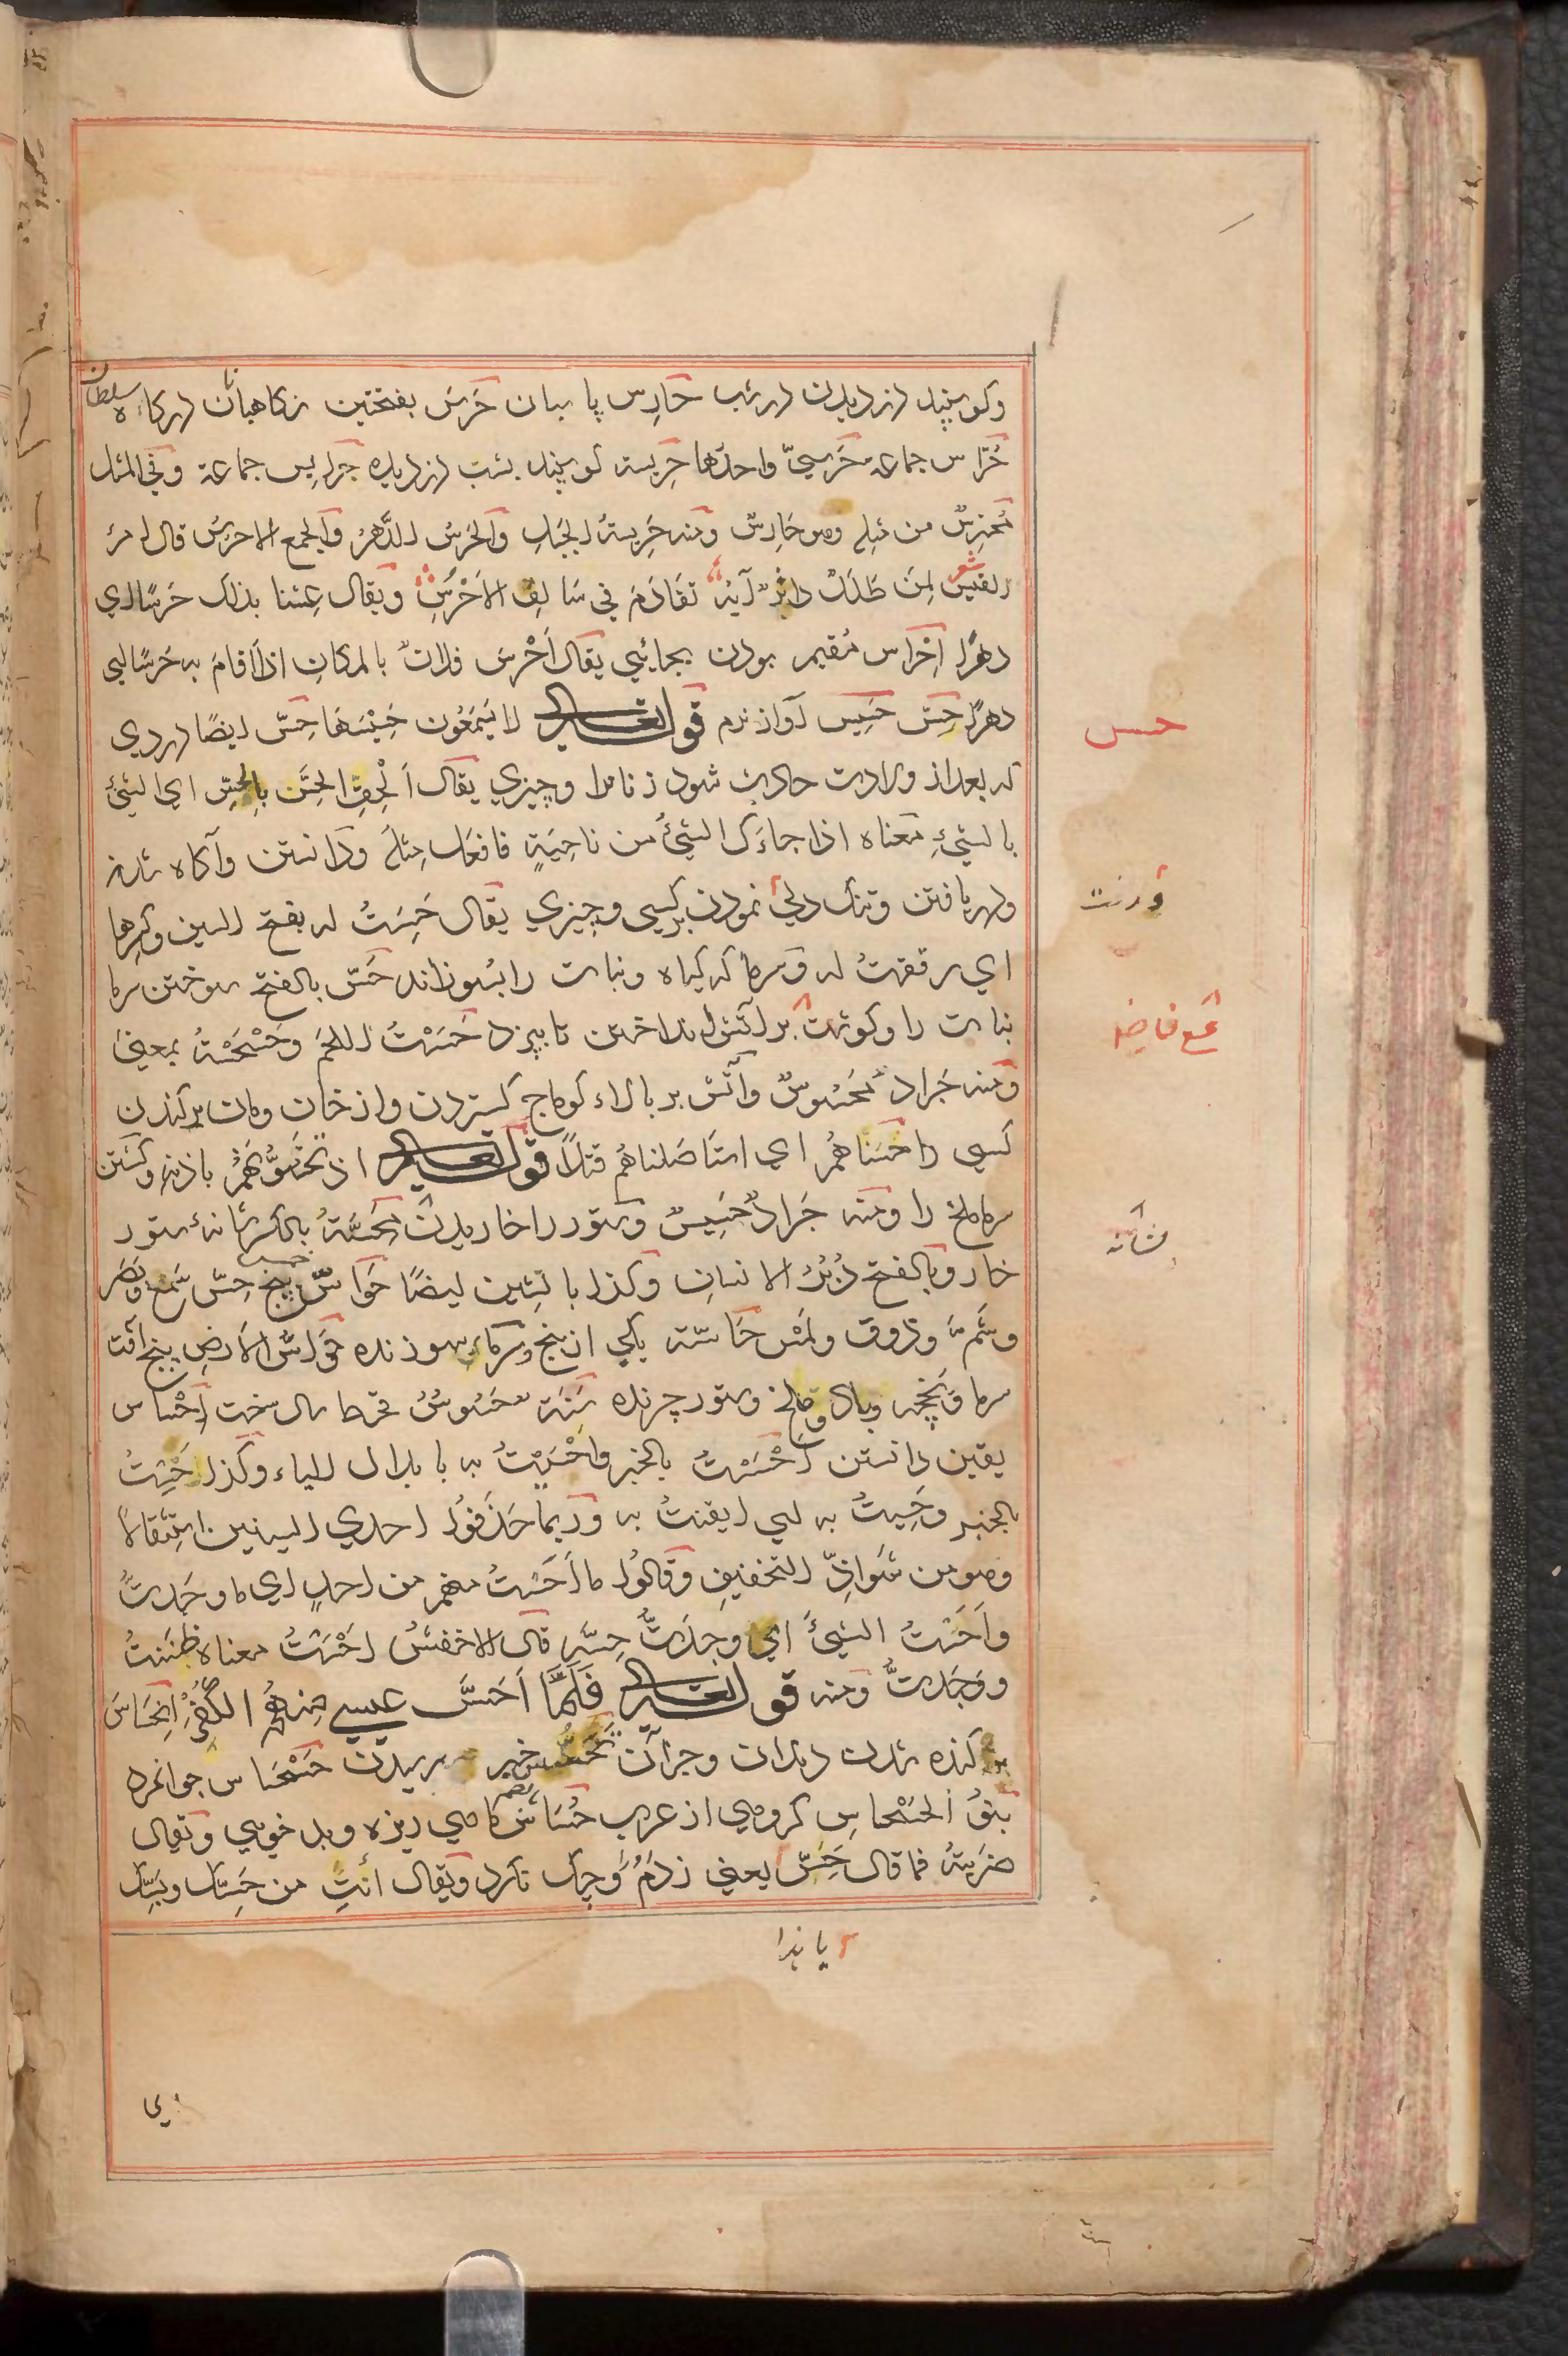 وکوسپند دزدیدن در شب حَارِس پاسبان حَرَس بفتحتین نکاهبانان درکاه سلطان
حُرَّاس جماعه حَرَسيّ واحدها حَرِیسة کوسپند بشب دزدیده حَرایِس جماعة وفي المثل
مُحترِسٌ من مثله وهو حَارِسٌ ومنه حَرِیسةُ الجَبَلِ والحَرْسُ الدَّهرُ والجمع الاحرُسُ قال امرؤ
القیس شعر لِمَن طَلَلٌ داثِرٌ آیُهُ تقَادَمَ في سَالِفِ الاَحْرُسِ ویقال عِشنا بذلک حَرسًا اي
دهرًا اِحْراس مُقیم بودن بجائیی یقال أَحْرَسَ فلانٌ بالمکانِ اذا اَقامَ به حَرسًا اي
دهرًا حِسّ حَسِیس آواز نرم قوله تعالی لا یَسمَعُون حَسِیْسَهَا حِسّ ایضًا دردي
که بعد از ولادت حادث شود زنانرا وچیزي یقال اَلْحِقِ الحِسَّ بالحِسِّ اي الشئَ
بالشيءِ معناه اذا جاءَک الشيءُ من ناحِیَةٍ فافعَل مِثلَه ودانستن وآکاه شدن
ودریافتن وتنک دلي نمودن برکسي وچیزي یقال حَسِستُ له بفتح السین وکسرها
اي رققتُ له وسرما که کیاه ونبات را بسوزاند حَسّ بالفتح سوختن سرما
نبات را وکوشت بر آتش انداختن تا بپزد حَسَسْتُ اللحمَ وحَسْحَسْتُه بمعنیً
ومنه جَرادٌ مَحسُوسٌ وآتش بر بالاء کوماج کستردن واز خان ومان برکندن
کسي را حَسَسناهُم اي استَأصَلناهُم قتلاً قوله تعالی اذ تَحُسُّونَهُم باذنِه وکشتن
سرما ملخ را ومنه جَرادٌ حَسِیسٌ وستور را خاریدن مِحَسَّةُ بالکسر شانهٔ ستور
خار وبالفتح دُبُرُ الانسانِ وکذا بالشین ایضًا حَوَاسّ پنج حِسّ سَمع وبَصَر
وشَمّ وذوق ولَمْس حَاسّة یکي از پنج وسرماء سوزنده حَواسُّ الارضِ پنج آفت
سرما ویخچه وباد وملخ وستور چرنده سَنَة حَسُوسٌ قحط سال سخت اِحْسَاس
یقین دانستن اَحْسَسْتُ بالخبر واَحْسَیْتُ به بابدال الیاء وکذا حَسِستُ
بالخبر وحَسِیتُ به اي ایقنتُ به وربما حَذَفوُا احدي السینین استثقالاً
وهو من شَواذِّ التخفیفِ وقالوُا ما اَحَسْتُ منهم من احدٍ اي ما وجَدتُ
واَحسَسْتُ الشئَ اي وجدتُ حِسَّه قال الاخفشُ اَحْسَسْتُ معناه ظنَنتُ
ووَجَدتُ ومنه قوله تعالی فَلَمَّا اَحَسَّ عیسي مِنهُمُ الکُفرَ اِنحِسَاس
کنده شدن دندان وجزآن تَحَسُّس خبر پرسیدن حَسْحَاس جوانمرد
بنوُ الحَسْحاسِ کروهي از عرب حُسَاسٌ ماهي ریزه وبد خوي ویقال
ضرَبتُه فما قال حَسِّ یعني زدم وآوخ نکرد ویقال اُتِ من حَسِّک وبَسِّک
حسس
مشانه
یا ندا